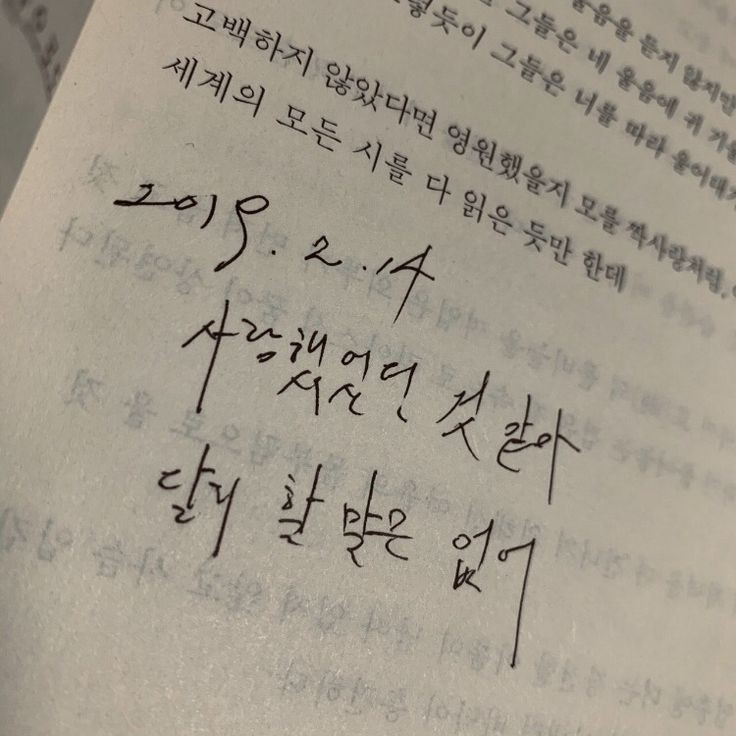 그들은 네 울음에 귀 기울
그들은 너를 따라 울어대
고백하지 않았다면 영원했을지 모를 짝사랑처럼,
세계의 모든 시를 다 읽은 듯만 한데
2019. 2. 14
사랑했었던 것 같아
달리 할 말은 없어